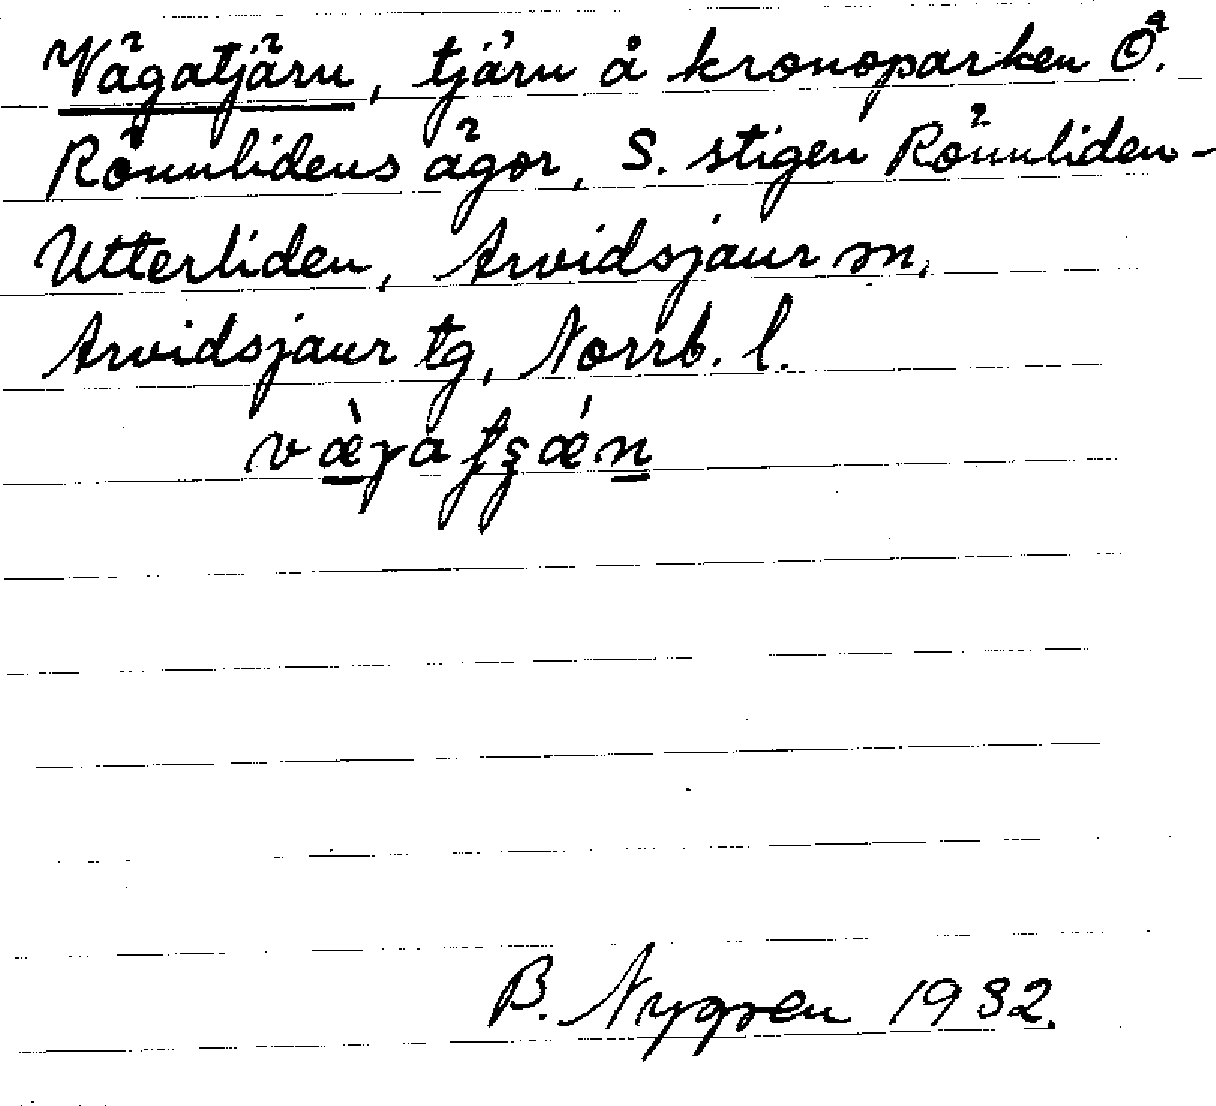 Vägatjärn, tjärn å kronoparken Ö.
Rönnlidens ägor, S. stigen Rönnliden-
Utterliden, Arvidsjaur sn,
Arvidsjaur tg, Norrb. l.
væ̀γatʂǽn
B. Nygren 1932.